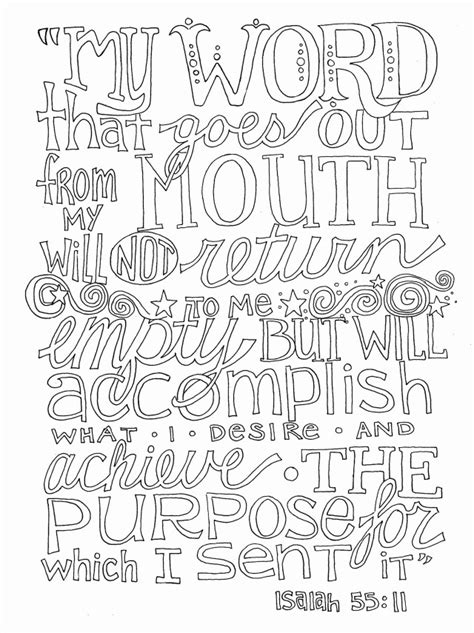 "MY WORD
that goes OUT
from MY MOUTH
WILL NOT return
TO ME
empty BUT WILL
accomplish
WHAT • I • DESIRE • AND
achieve • THE
PURPOSE for
which I SENT it"
ISAIAH 55:11